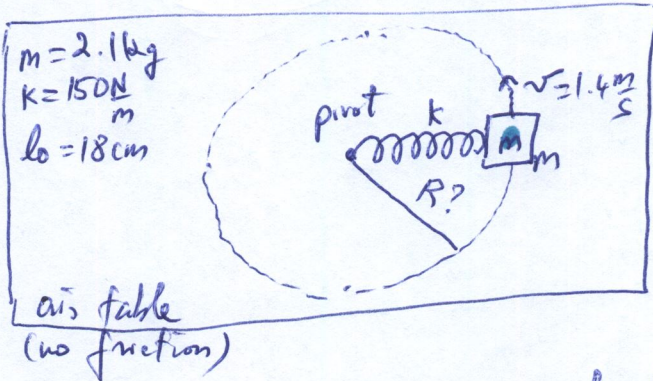 m = 2.1 kg
K = 150 N/m
l₀ = 18 cm
pivot
k
v = 1.4 m/s
m
m
R?
air table
(no friction)